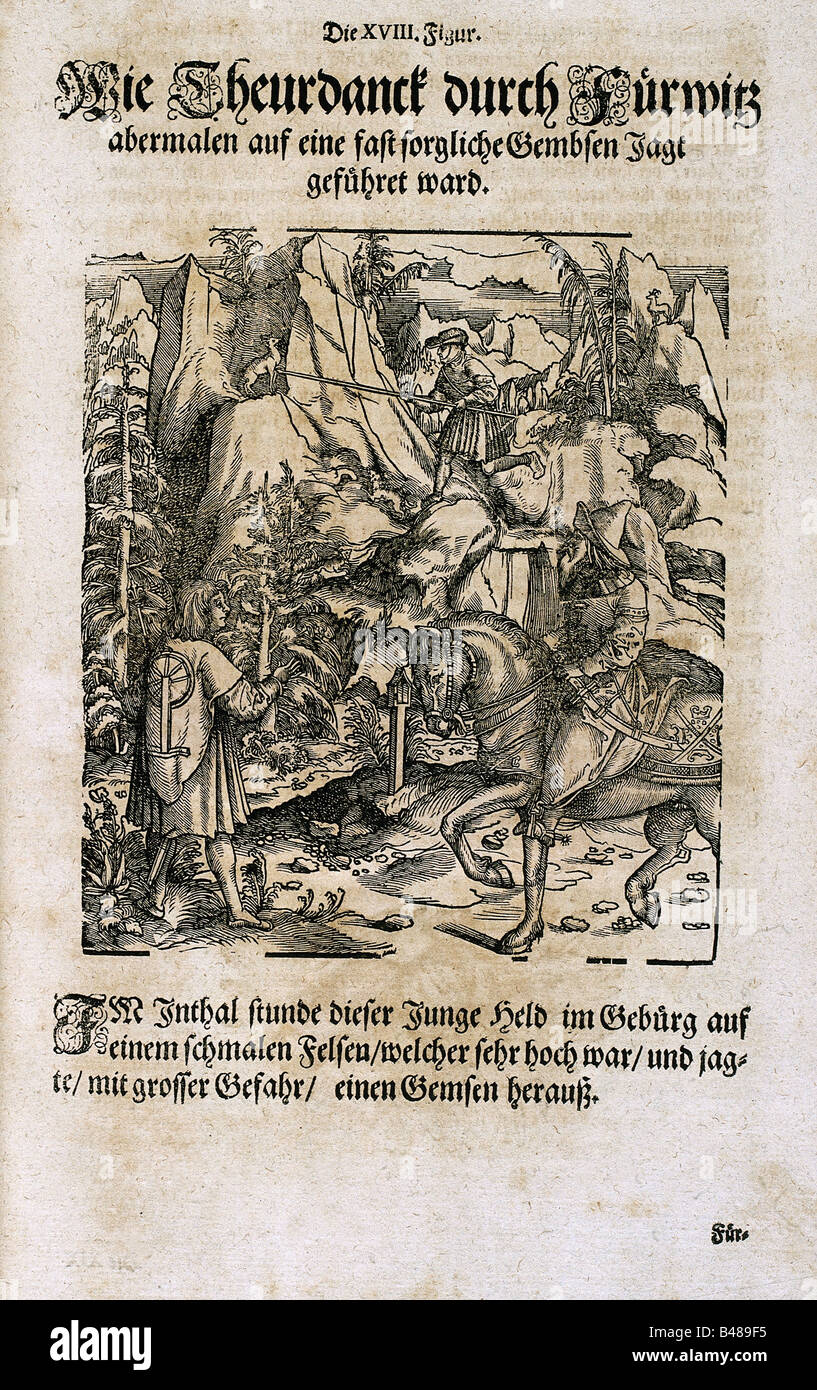 Die XVIII. Figur.
Wie Theurdanck durch Fürwitz
abermalen auf eine fast sorgliche Gembsen Jagt
geführet ward.
IM Inthal stunde dieser Junge Held im Gebürg auf
einem schmalen Felsen/welcher sehr hoch war/ und jag-
te/ mit grosser Gefahr/ einen Gemsen herauß.
Für-
alamy
alamy
alamy
Image ID: B489F5
www.alamy.com